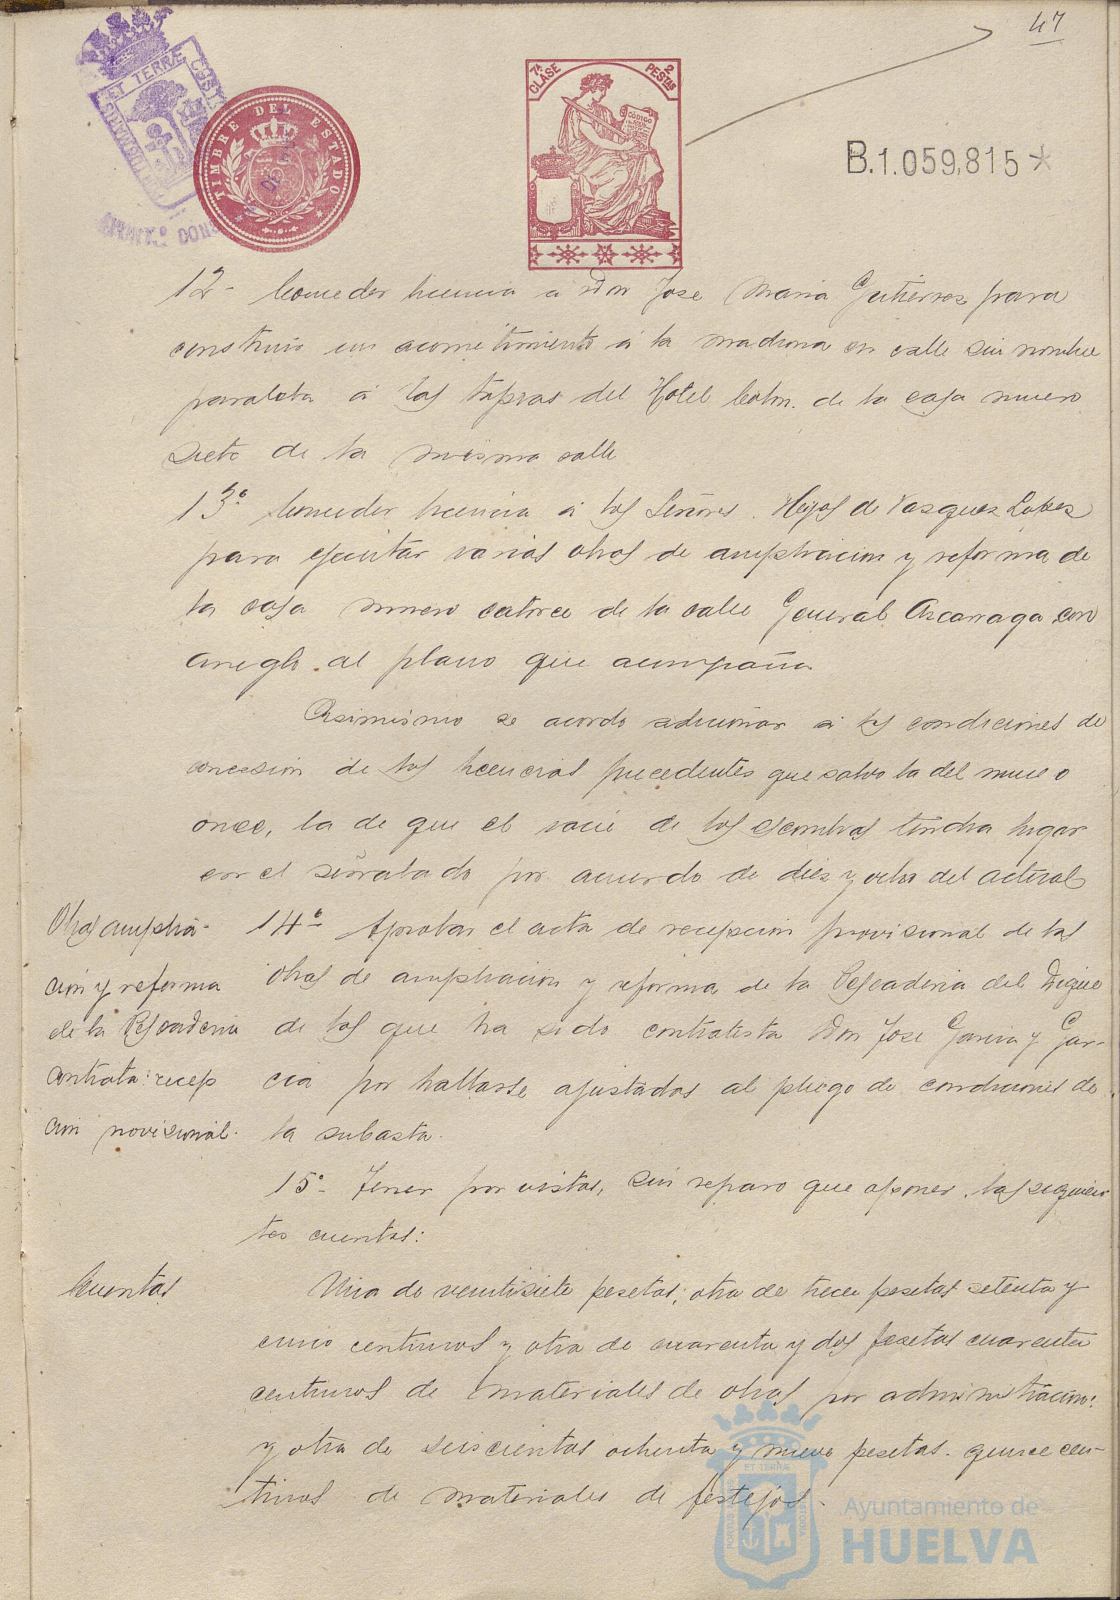 47
ET TERRÆ CUSTODIA
TIMBRE DEL ESTADO
7ª CLASE
2 PESTAS
CODIGO
B.1.059,815*
12- Conceder licencia a Don Jose Maria Gutierrez para
construir un acometimiento á la madrona en calle sin nombre
paralela á las tapias del Hotel Colon. de la casa numero
siete de la misma calle
13º Conceder licencia á los Señores. Hijos de Vazquez Lopez
para ejecutar varias obras de ampliacion y reforma de
la casa numero catorce de la calle General Azcarraga con
arreglo al plano que acompaña
Asimismo se acordo adicionar á las condiciones de
concesion de las licencias precedentes que salvo la del numero
once, la de que el vacie de los escombros tendra lugar
en el señalado por acuerdo de diez y ocho del actual
Obras amplia-
cion y reforma
de la Pescaderia
contrata: recep
cion provisional.
14º Aprobar el acta de recepcion provisional de las
obras de ampliacion y reforma de la Pescaderia del Dique
de las que ha sido contratista Don Jose Garcia y Gar-
cia por hallarse ajustadas al pliego de condiciones de
la subasta.
15º- Tener por vistas, sin reparo que oponer, las siguien
tes cuentas:
Cuentas
Una de veintisiete pesetas; otra de trece pesetas setenta y
cinco centimos y otra de cuarenta y dos pesetas cuarenta
centimos de materiales de obras por administracion:
y otra de seiscientas ochenta y nueve pesetas quince cen-
timos de materiales de festejos.
Ayuntamiento de
HUELVA